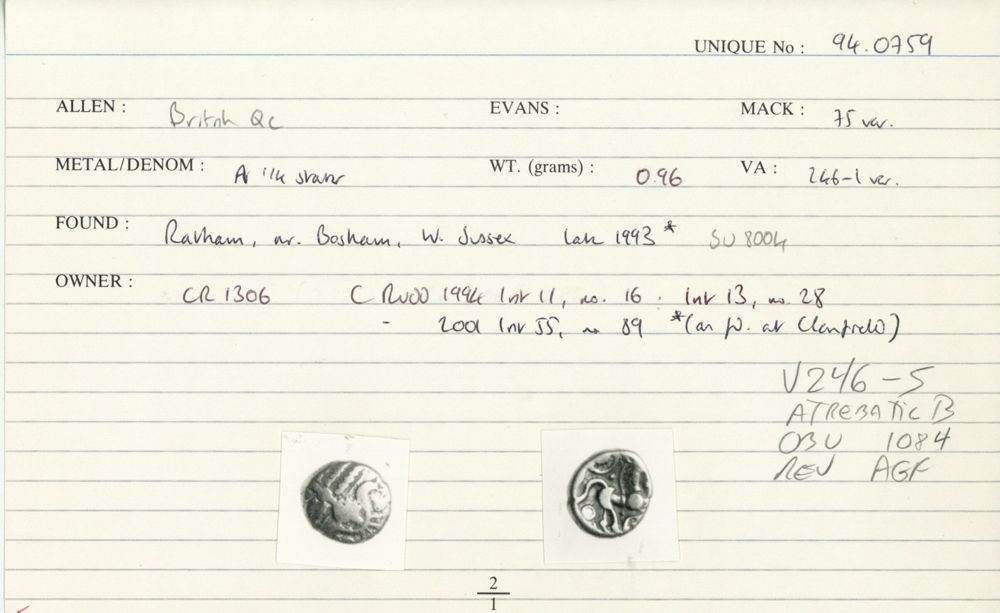 UNIQUE No : 94.0759
ALLEN : British Qc EVANS : MACK : 75 var.
METAL/DENOM : A 1/4 stater WT. (grams) : 0.96 VA : 246-1 var.
FOUND : Ratham, nr. Bosham, W. Sussex late 1993 * SU 8004
OWNER : CR 1306 C RUDD 1994 list 11, no. 16 . list 13, no. 28
- 2001 list 55, no 89 *(as fd. at Clanfield)
V246-5
ATREBATIC B
OBV 1084
REV AGF
2
1